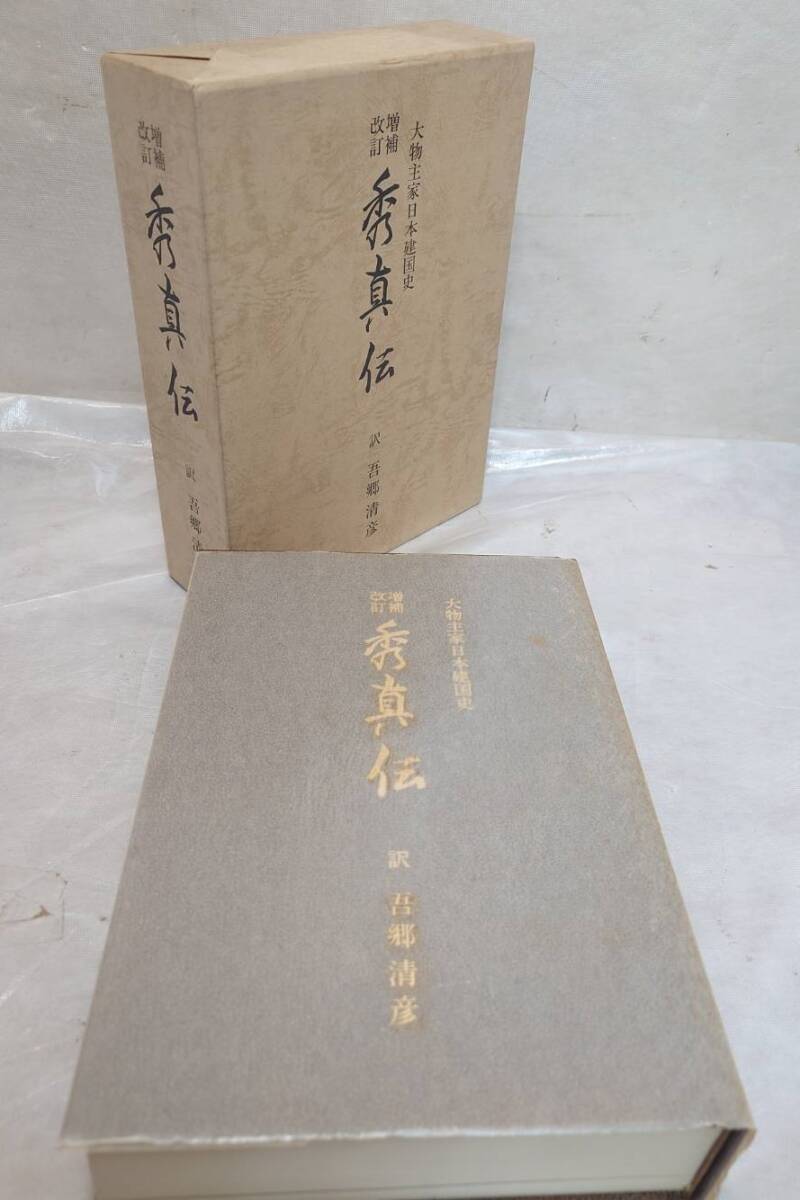 大物主家日本建国史
増補
改訂
秀真伝
訳 吾郷清彦
増補
改訂
秀真伝
訳 吾郷
大物主家日本建国史
増補
改訂
秀真伝
訳 吾郷清彦